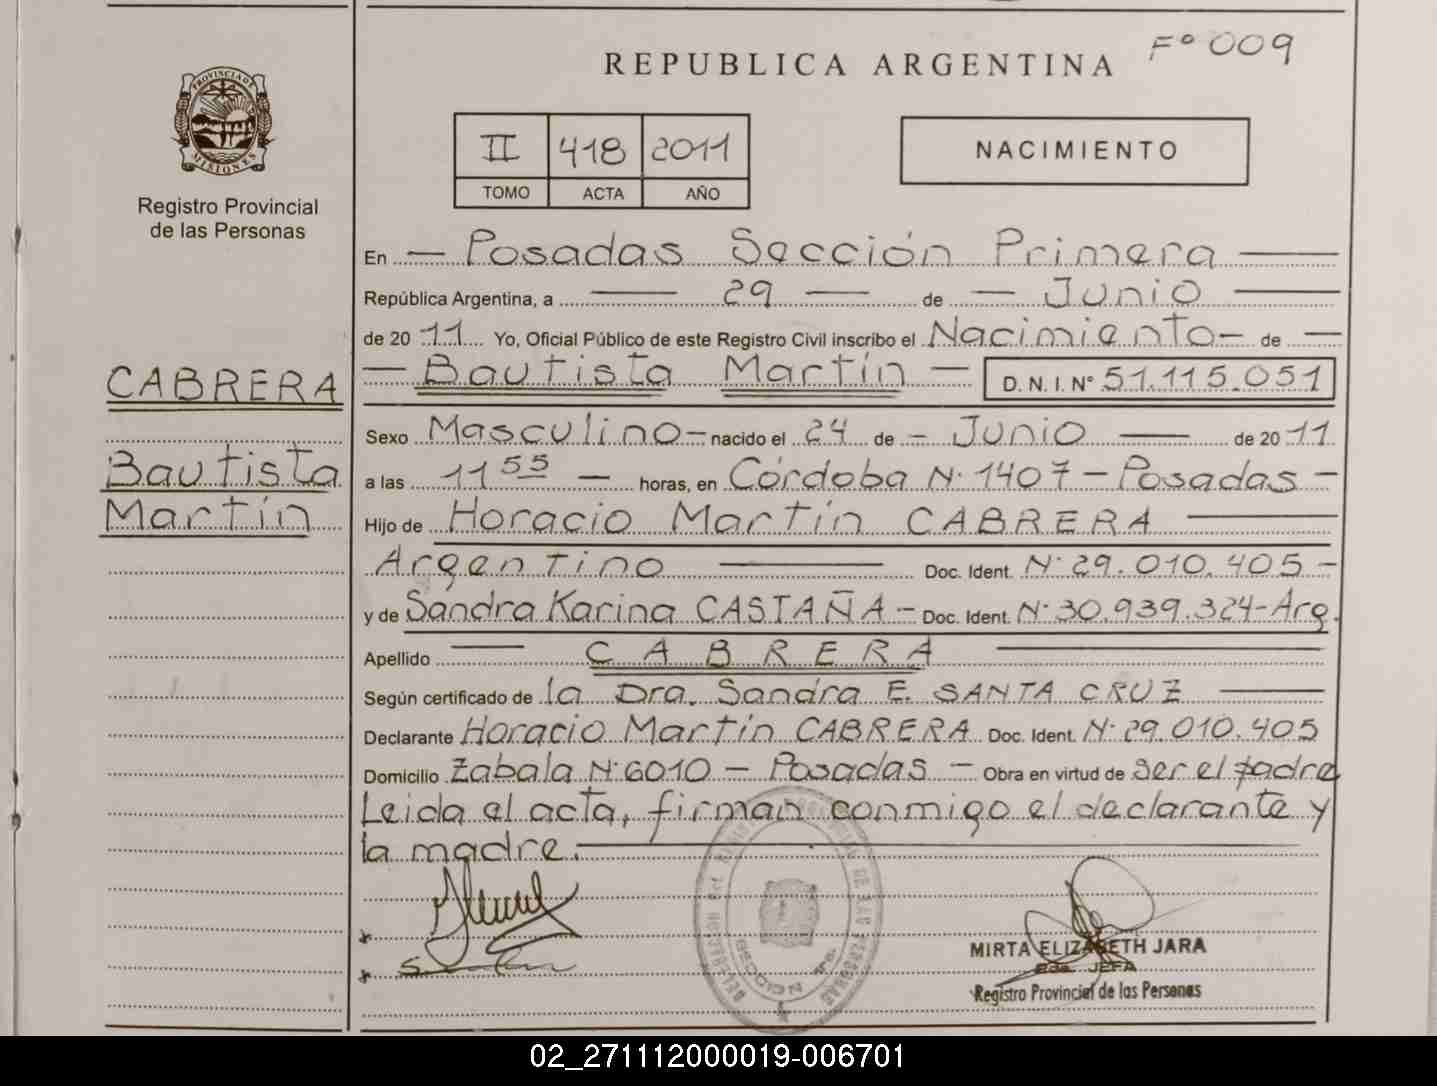 Fº 009
REPUBLICA ARGENTINA
PROVINCIA DE
MISIONES
Registro Provincial
de las Personas
II 418 2011
TOMO ACTA AÑO
NACIMIENTO
En — Posadas Sección Primera —
República Argentina, a — 29 — de — Junio —
de 20 11 Yo, Oficial Público de este Registro Civil inscribo el Nacimiento — de —
— Bautista Martín — D. N. I. Nº 51.115.051
CABRERA
Bautista
Martín
Sexo Masculino — nacido el 24 de — Junio — de 20 11
a las 11 55 — horas, en Córdoba Nº 1407 — Posadas —
Hijo de Horacio Martín CABRERA —
Argentino — Doc. Ident. Nº 29.010.405 —
y de Sandra Karina CASTAÑA — Doc. Ident. Nº 30.939.324 - Arg.
Apellido — CABRERA —
Según certificado de la Dra. Sandra E. SANTA CRUZ —
Declarante Horacio Martín CABRERA Doc. Ident. Nº 29.010.405
Domicilio Zabala Nº 6010 — Posadas — Obra en virtud de ser el padre
Leida el acta, firman conmigo el declarante y
la madre. —
MIRTA ELIZABETH JARA
JEFA
Registro Provincial de las Personas
02_271112000019-006701